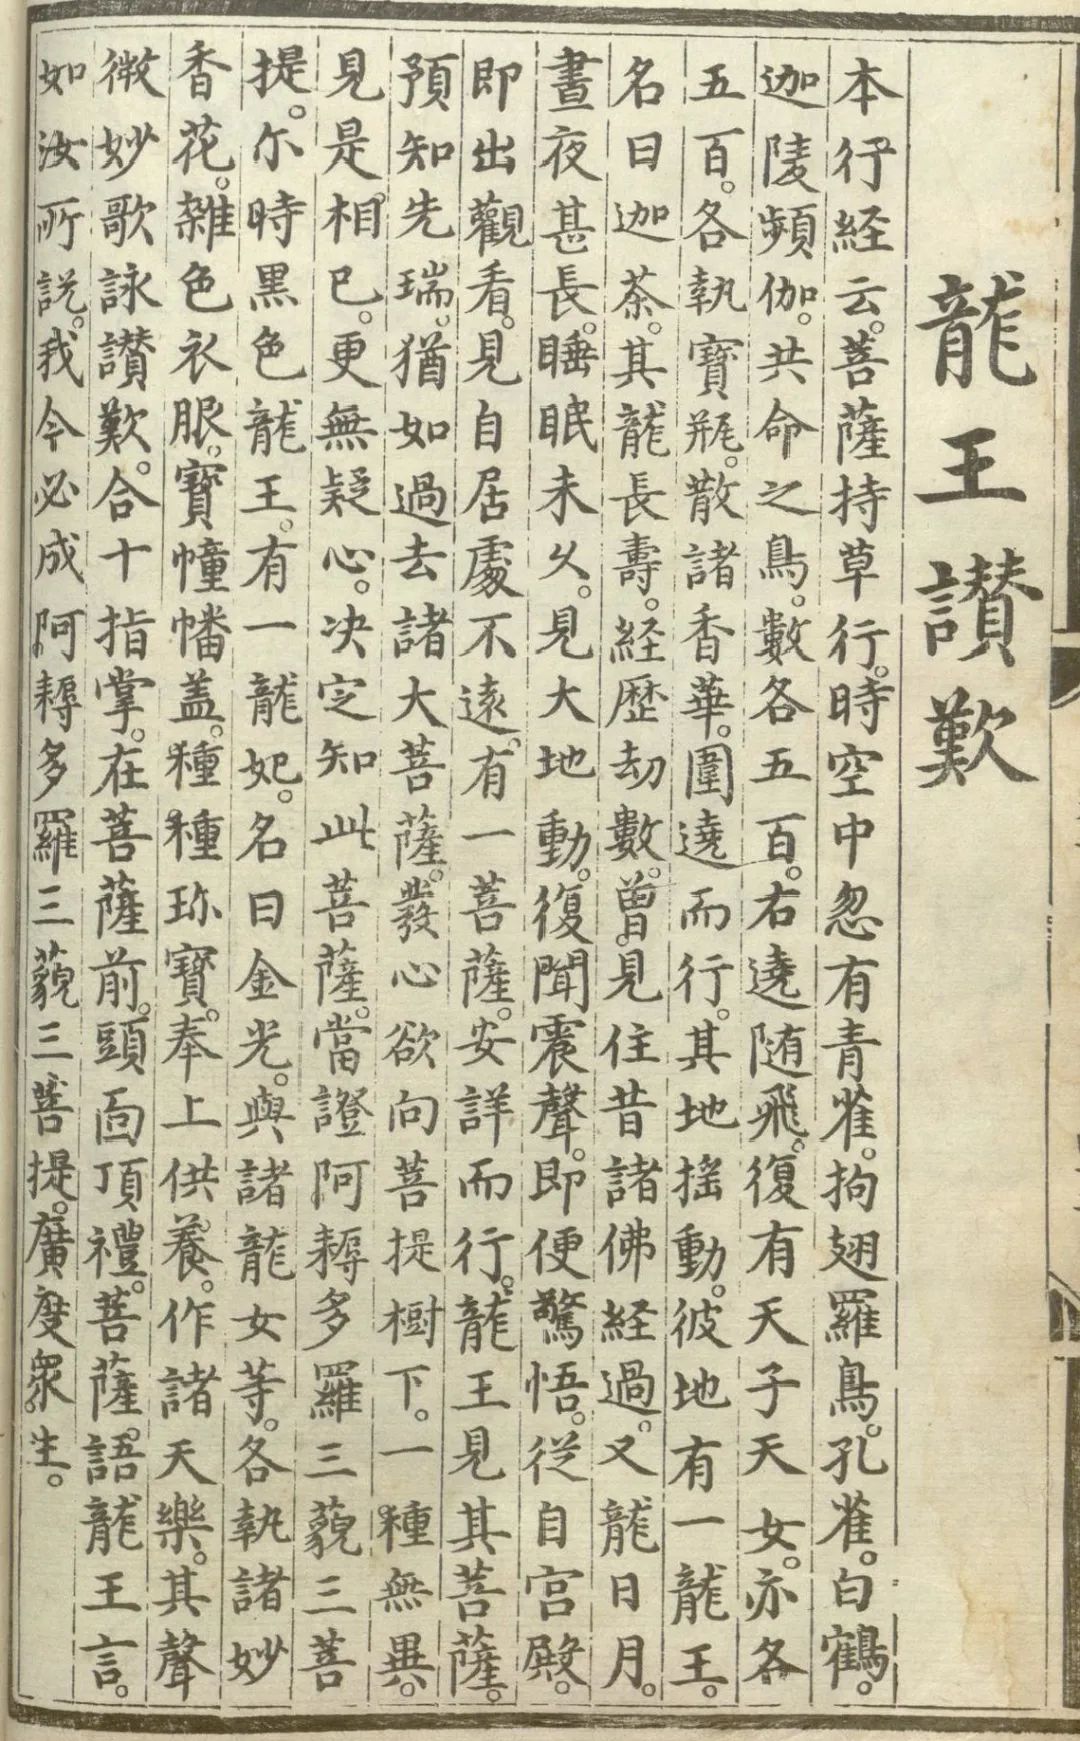 龍王讃歎
本行経云。菩薩持草行。時空中忽有青雀。拘翅羅鳥。孔雀。白鶴。
迦陵頻伽。共命之鳥。數各五百。右遶随飛。復有天子天女。亦各
五百。各執寶瓶。散諸香華。圍遶而行。其地揺動。彼地有一龍王。
名曰迦荼。其龍長壽。経歷劫數。曽見住昔諸佛経過。又龍日月。
晝夜甚長。睡眠未久。見大地動。復聞震聲。即便驚悟。従自宫殿。
即出觀看。見自居處不遠。有一菩薩。安詳而行。龍王見其菩薩。
預知先瑞。猶如過去諸大菩薩。發心欲向菩提樹下。一種無異。
見是相已。更無疑心。决定知此菩薩。當證阿耨多羅三藐三菩
提。尓時黒色龍王。有一龍妃。名曰金光。與諸龍女等。各執諸妙
香花。雑色衣服。寶幢幡盖。種種珎寶。奉上供養。作諸天樂。其聲
微妙歌詠讃歎。合十指掌。在菩薩前。頭面頂禮。菩薩語龍王言。
如汝所説。我今必成阿耨多羅三藐三菩提。廣度衆生。